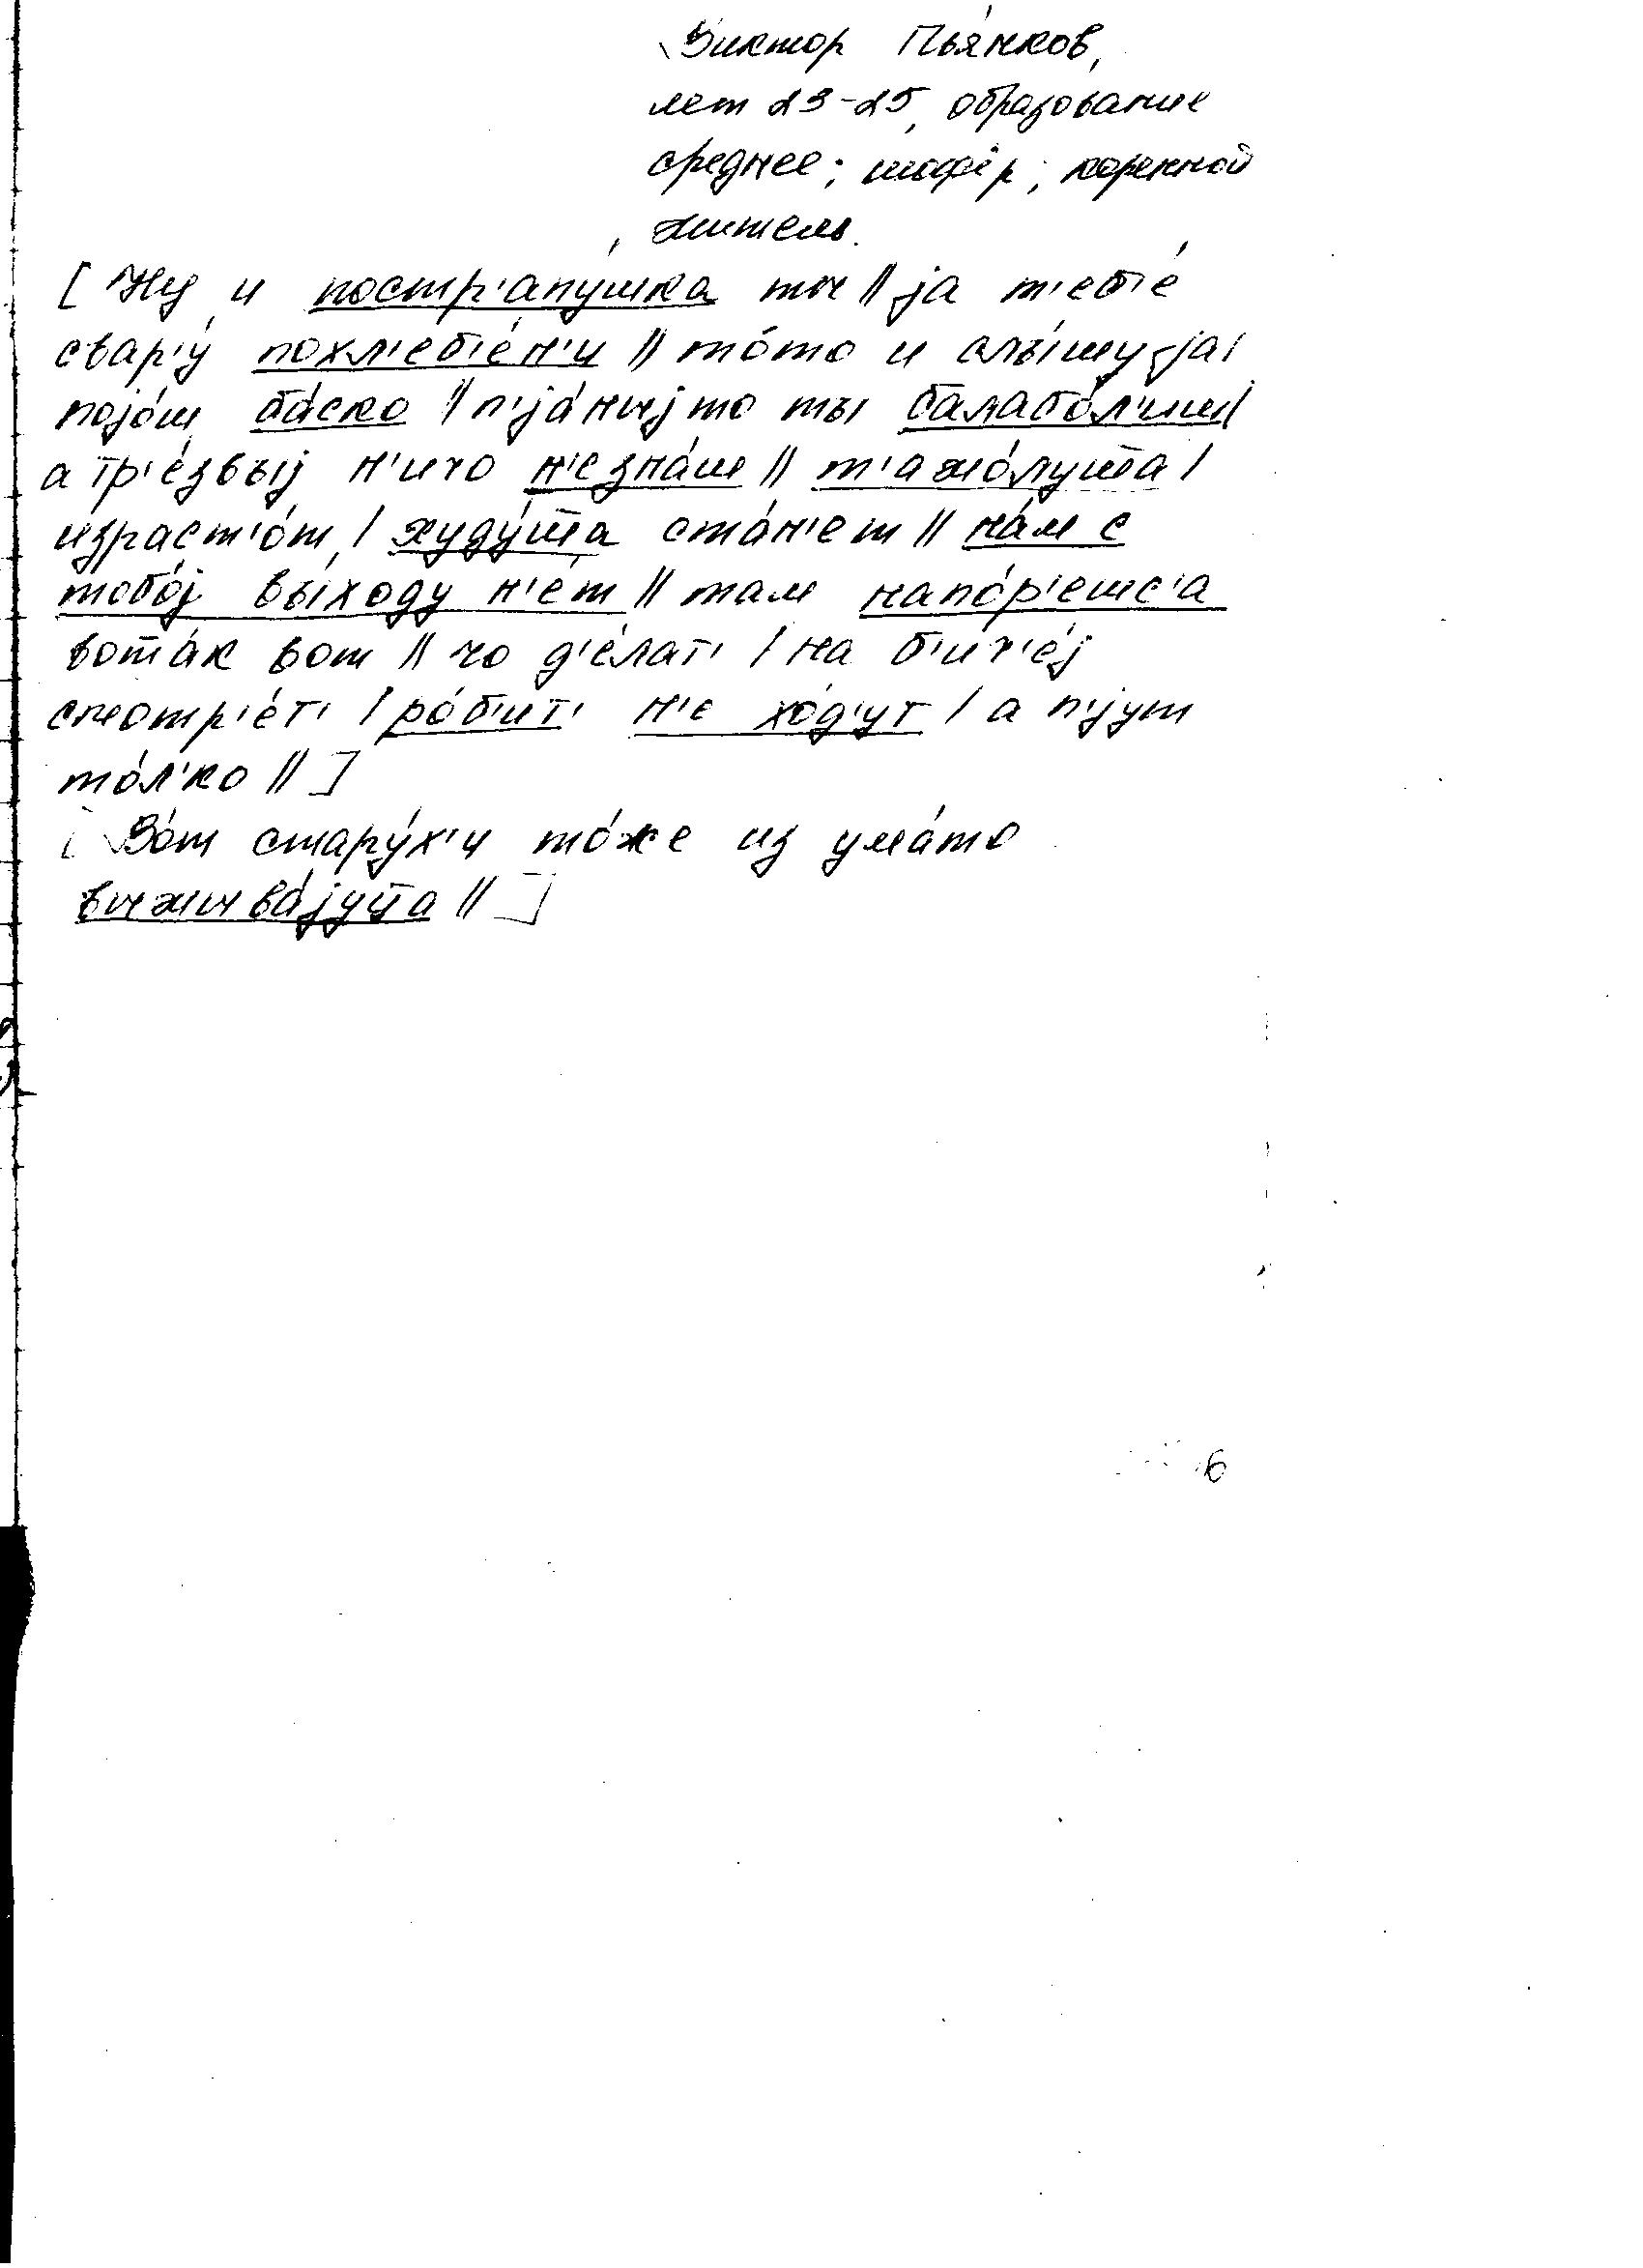 Виктор Пья́нков,
лет 23-25, образование
среднее; шофёр; коренной
житель.
[ Ну и постр'апу́шка ты || ja т'еб'е́
свар'у́ похл'еб'е́н'и || то́то и слы́шу ja |
поjо́ш ба́ско || п'jа́ныj то ты балабо́л'иш |
а тр'е́звыj н'ичо н'е зна́ш || т'ажо́лушша |
израст'о́т | худу́шша ста́н'ет || на́м с
тобо́j вы́ходу н'е́т || там напо́р'ешс'а
вота́к вот || чо д'е́лат' | на б'ич'е́j
смотр'е́т' | ро́б'ит' н'е хо́д'ут | а п'jут
то́л'ко || ]
[ Во́т стару́х'и то́же из ума́то
выжыва́jуцца || ]
6